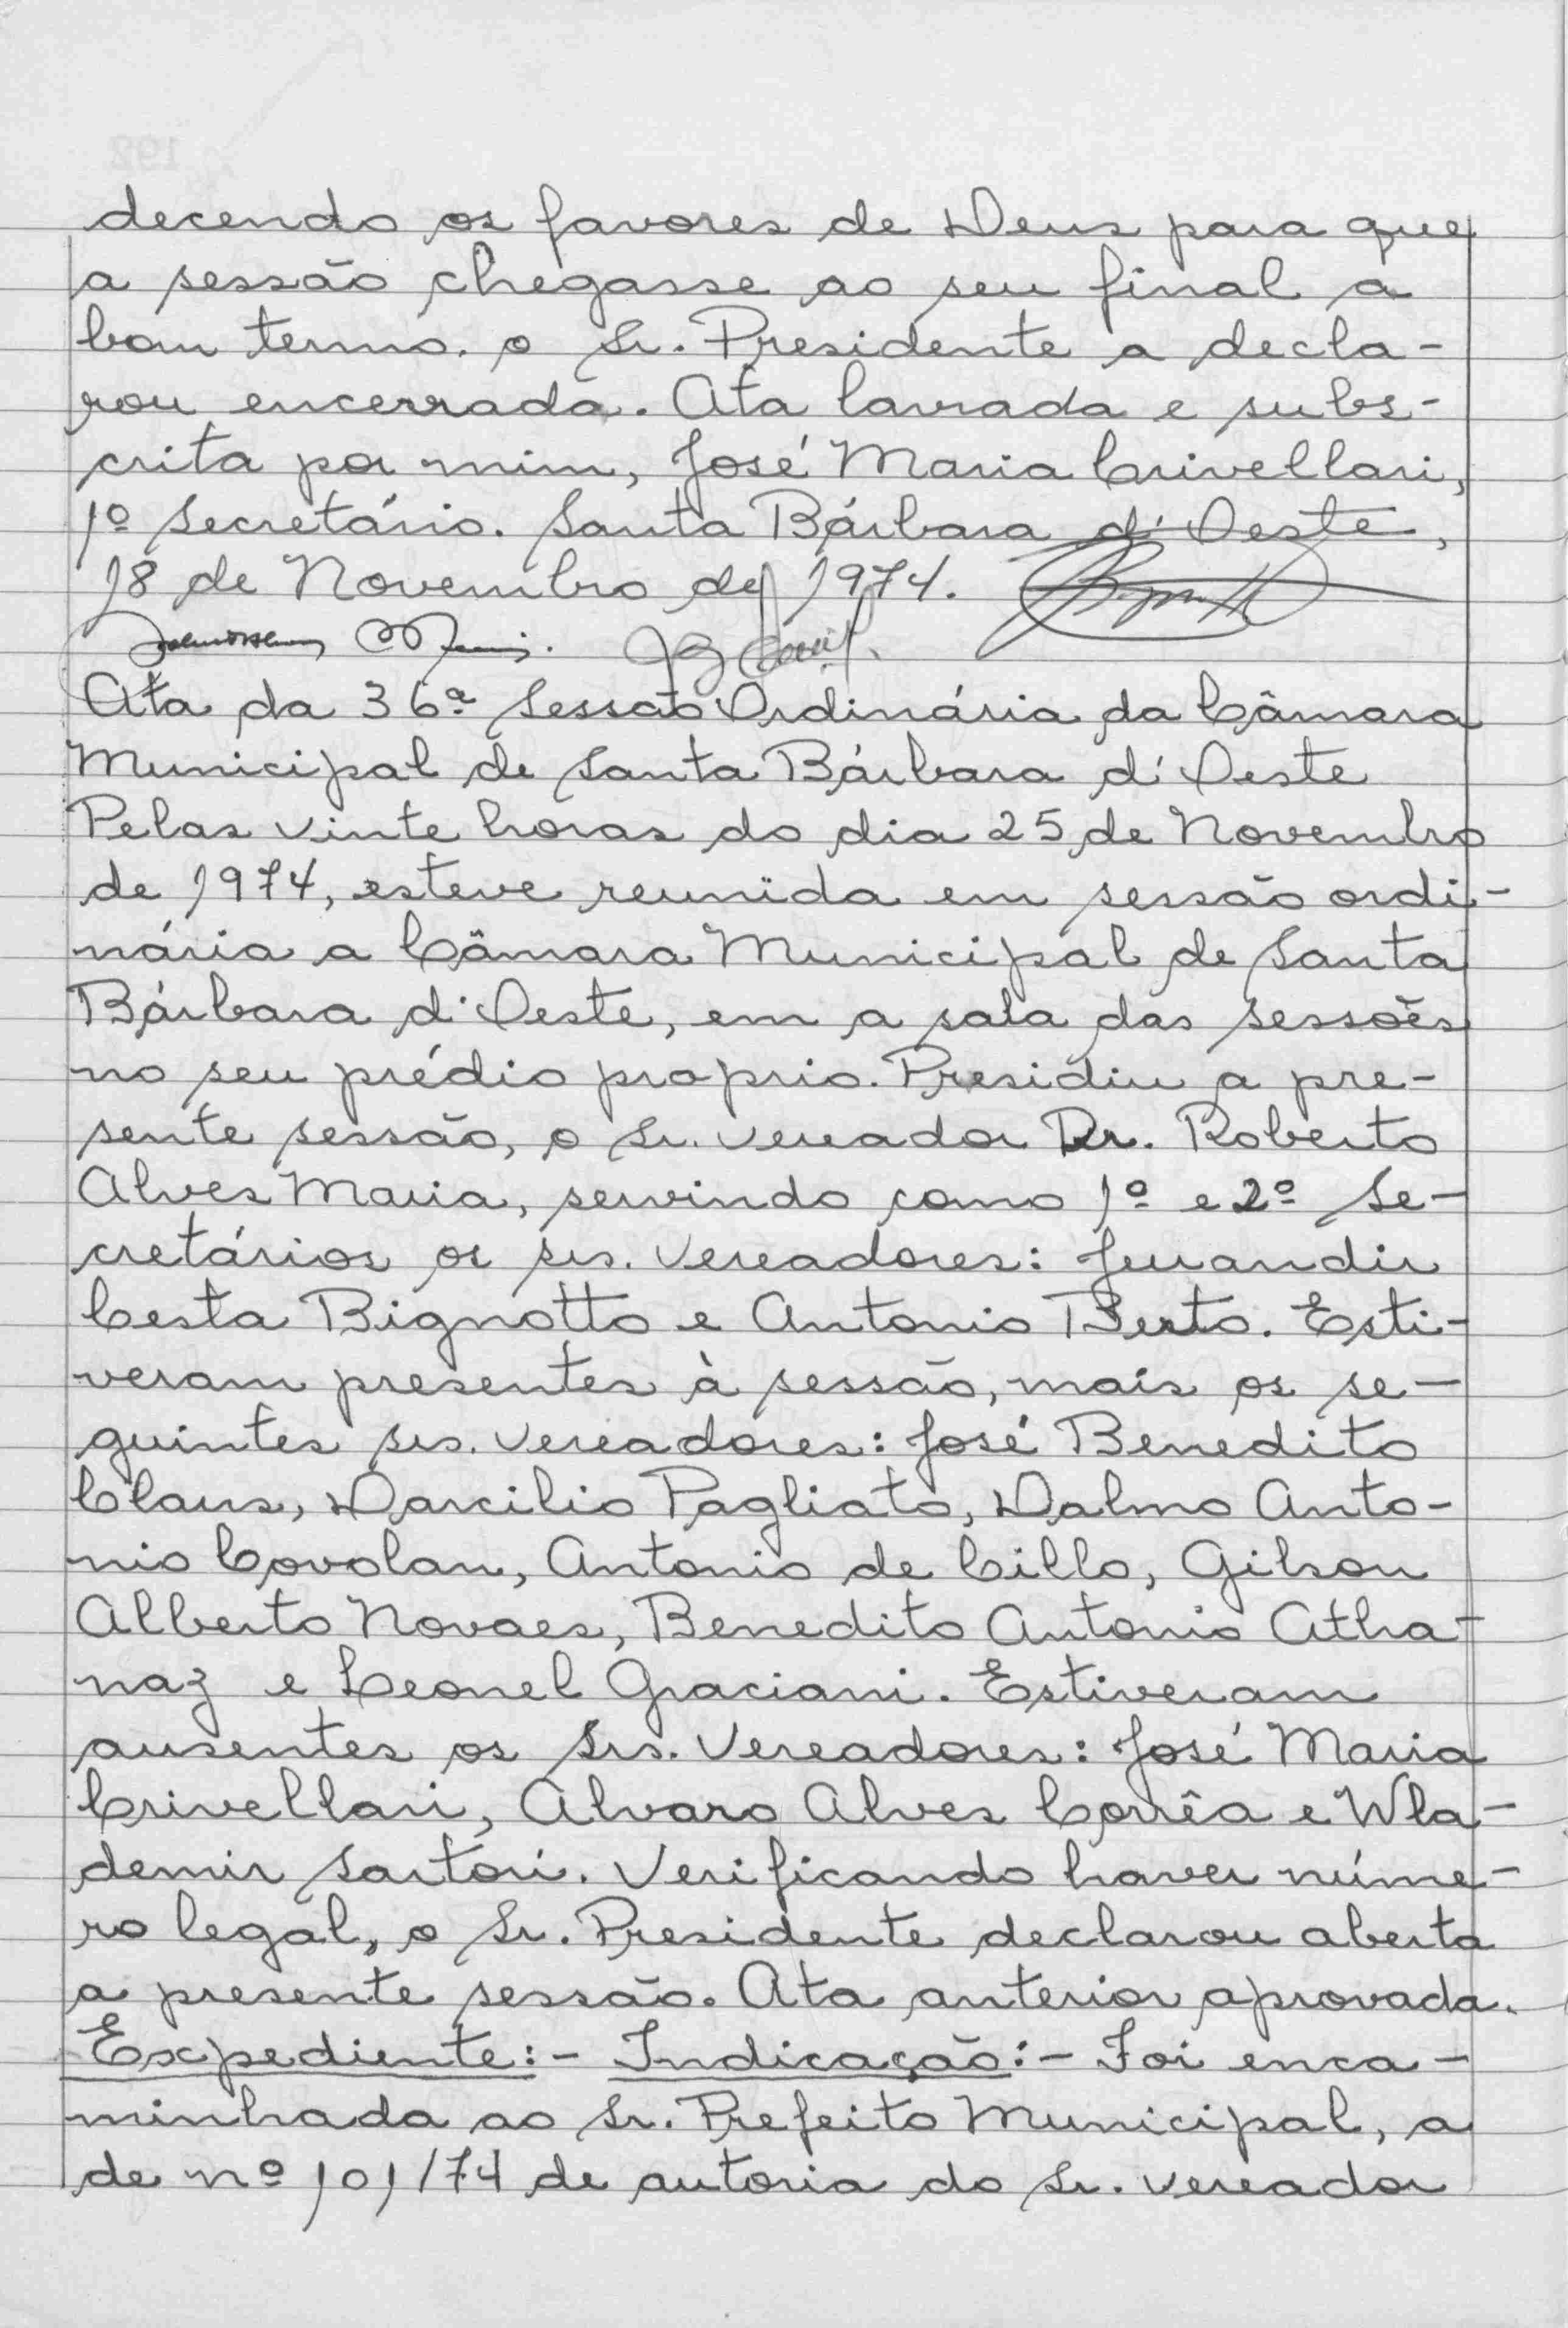 decendo os favores de Deus para que
a sessão chegasse ao seu final a
bom termo. o Sr. Presidente a decla-
rou encerrada. Ata lavrada e subs-
crita por mim, José Maria Crivellari,
1º Secretário. Santa Bárbara d'Oeste,
18 de Novembro de 1974.
Ata da 36ª Sessão Ordinária da Câmara
Municipal de Santa Bárbara d'Oeste
Pelas vinte horas do dia 25 de Novembro
de 1974, esteve reunida em sessão ordi-
nária a Câmara Municipal de Santa
Bárbara d'Oeste, em a sala das sessões
no seu prédio proprio. Presidiu a pre-
sente sessão, o Sr. vereador Dr. Roberto
Alves Maria, servindo como 1º e 2º Se-
cretários os srs. vereadores: Jurandir
Cesta Bignotto e Antonio Berto. Esti-
veram presentes à sessão, mais os se-
guintes srs. vereadores: José Benedito
Claus, Darcilio Pagliato, Dalmo Anto-
nio Covolan, Antonio de Cillo, Gilson
Alberto Novaes, Benedito Antonio Atha-
naz e Leonel Graciani. Estiveram
ausentes os Srs. Vereadores: José Maria
Crivellari, Alvaro Alves Corrêa e Wla-
demir Sartori. Verificando haver núme-
ro legal, o Sr. Presidente declarou aberta
a presente sessão. Ata anterior aprovada.
Expediente:- Indicação:- Foi enca-
minhada ao Sr. Prefeito Municipal, a
de nº 101/74 de autoria do Sr. vereador